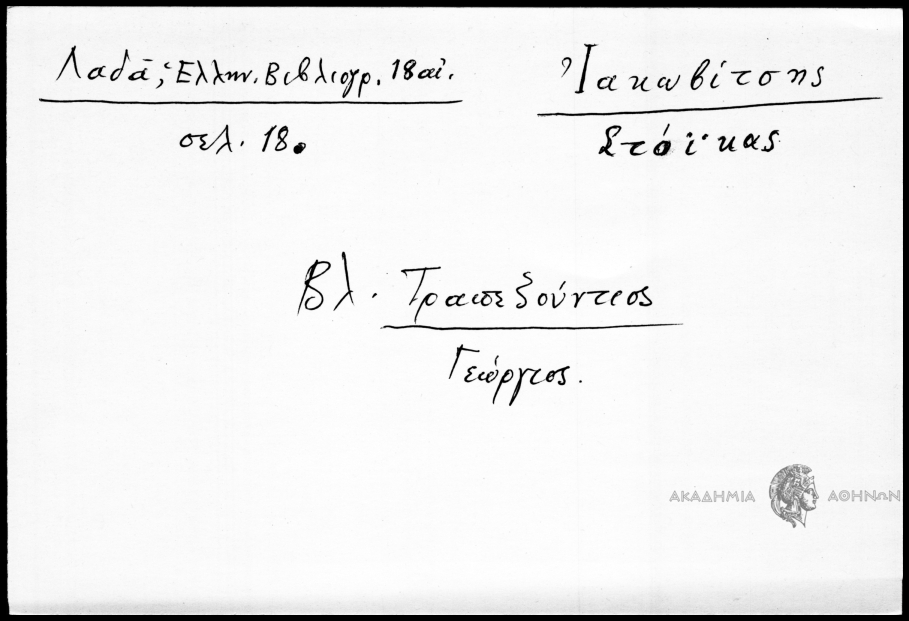 Λαδᾶ, Ἑλλην. Βιβλιογρ. 18 αἰ.
σελ. 18.
Ἰακωβίτσης
Στόϊκας
Βλ. Τραπεζούντιος
Γεώργιος.
ΑΚΑΔΗΜΙΑ ΑΘΗΝΩΝ